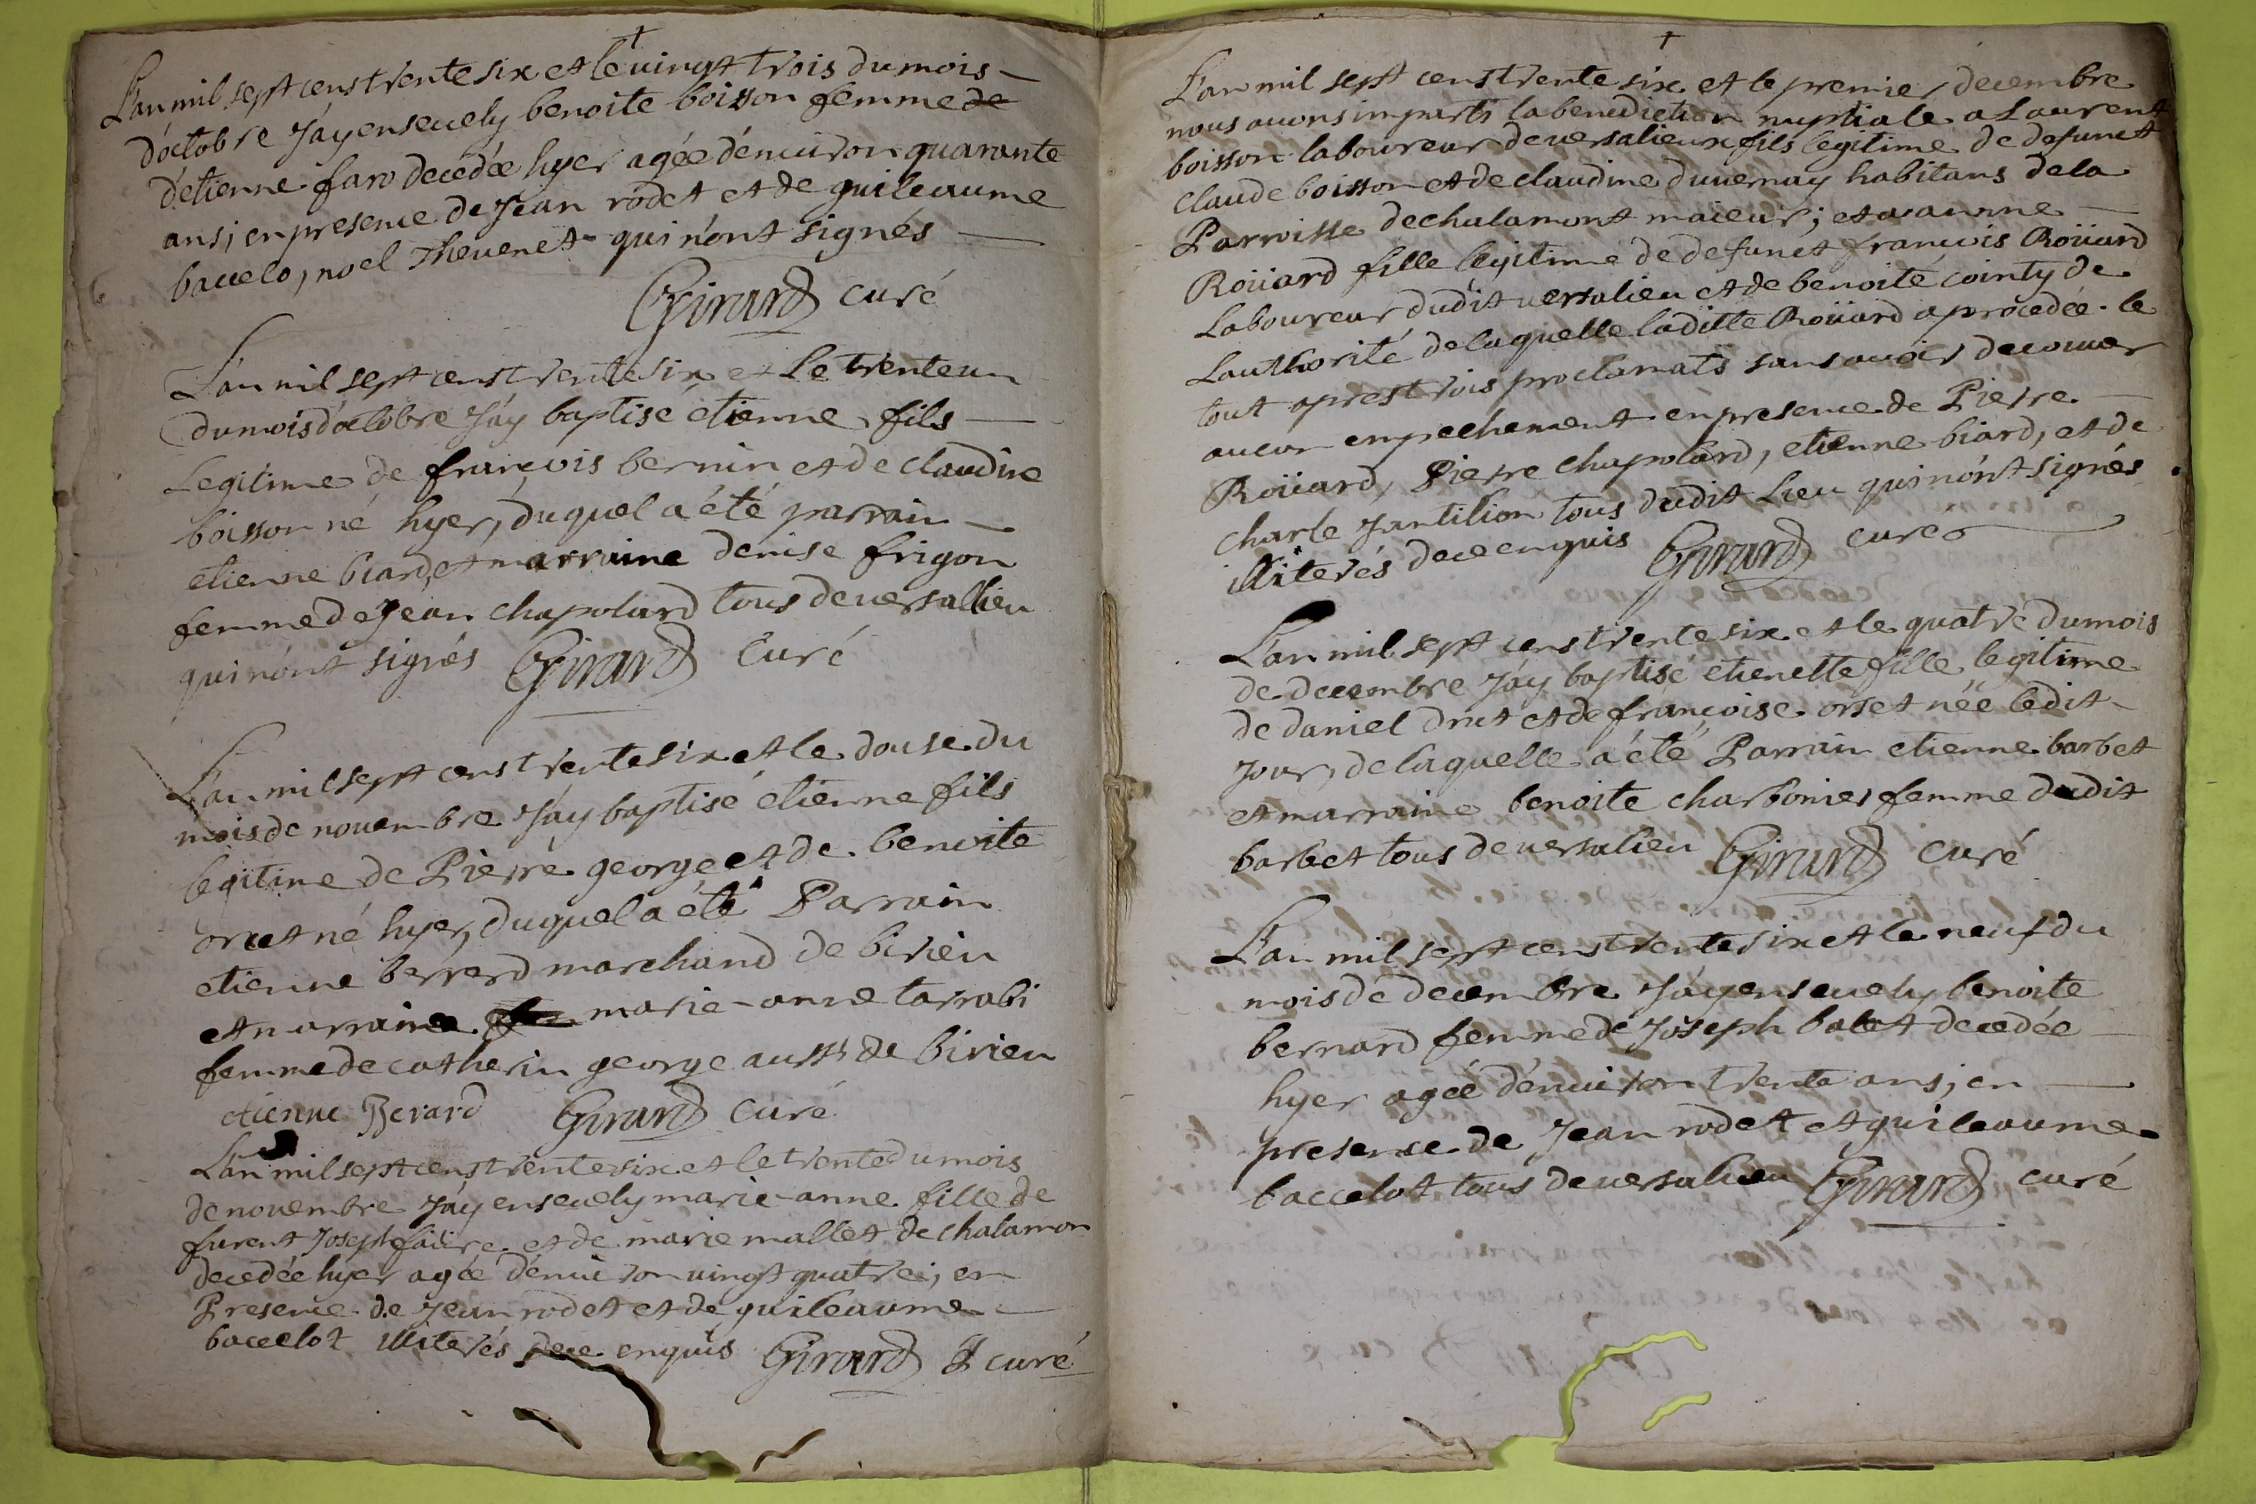 L'an mil sept cens trente six et le vingt trois du mois
d'octobre J'ay ensevely benoite boisson femme de
d'etienne faro decedée hyer agée d'environ quarante
ans; en presence de Jean rodet et de guileaume
baccelo, noel Thevenet qui n'ont signés
Girard curé
L'an mil sept cens trente six et Le trente un
du mois d'octobre J'ay baptisé étienne fils
Legitime de françois bernin et de claudine
boisson né hyer, duquel a été parrain
etienne biard, et marraine denise frigon
femme de Jean chapolard tous de versallieu
qui n'ont signés Girard Curé
L'an mil sept cens trente six et le douse du
mois de novembre J'ay baptisé étienne fils
legitime de Pierre george et de benoite
orset né hyer, duquel a été Parrain
etienne berrerd marchand de birieu
et marraine marie-anne tarrabi
femme de catherin george aussi de birieu
etienne Berard Girard Curé
L'an mil sept cens trente six et le trente du mois
de novembre J'ay ensevely marie-anne fille de
furent Joseph faivre et de marie mallet de chalamon
decedée hyer agée d'environ vingt quatre; en
Presence de Jean rodet et de guileaume
baccelot illiterés de ce enquis Girard curé
L'an mil sept cens trente six et le premier decembre
nous avons imparti la benediction nuptiale a Laurent
boisson laboureur de versalieux fils legitime de defunct
claude boisson et de claudine duvernay habitans de la
Parroisse de chalamont maieur; et a anne
Roüard fille legitime de defunct françois Roüard
Laboureur dudit versalieu et de benoite cointy de
L'authorité de laquelle laditte Roüard a procedée. le
tout apres trois proclamats sans avoir decouver
aucun empechement en presence de Pierre
Roüard, Pierre chapolard, etienne biard, et de
charle Jantilion tous dudit Lieu qui n'ont signés
illiterés de ce enquis Girard curé
L'an mil sept cens trente six et le quatre du mois
de decembre J'ay baptisé etienette fille legitime
de daniel drut et de françoise orset née ledit
jour, de laquelle a été Parrain etienne barbet
et marraine benoite charbonier femme dudit
barbet tous de versalieu Girard curé
L'an mil sept cens trente six et le neuf du
mois de decembre J'ay ensevely benoite
bernard femme de Joseph balet decedée
hyer agée d'environ trente ans; en
presense de Jean rodet et guileaume
baccelot tous de versalieu Girard curé